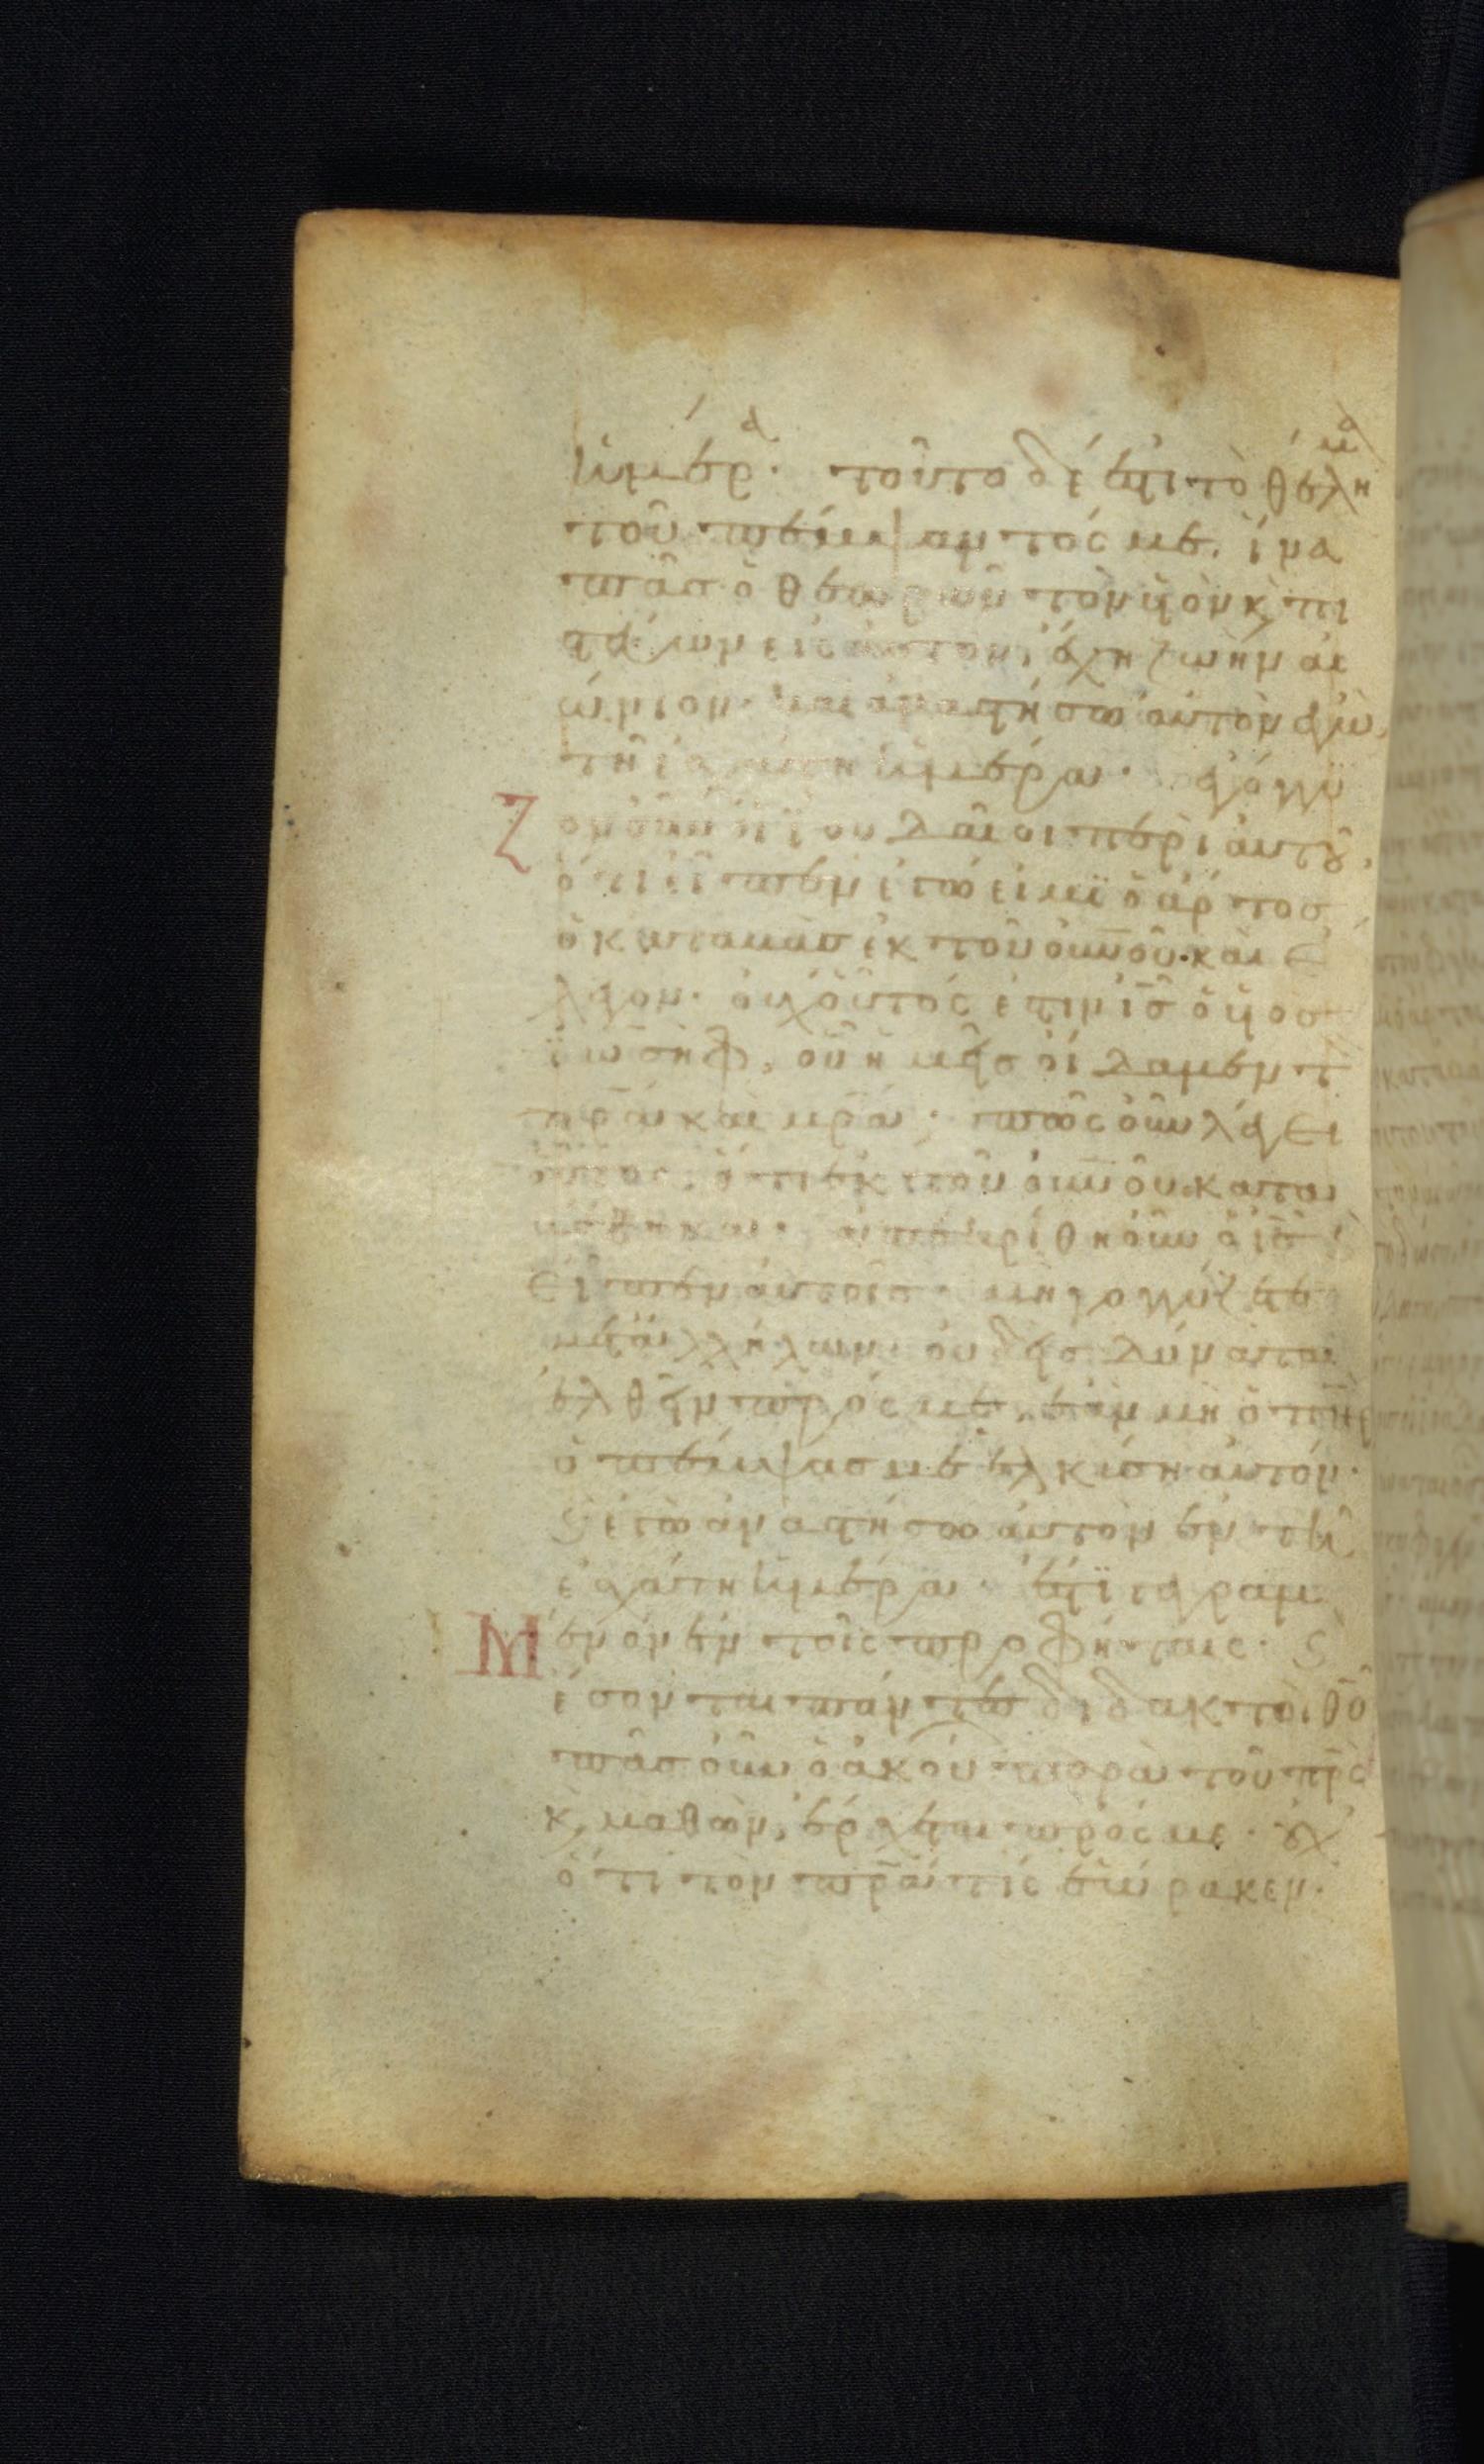 ἡμέρᾳ. τοῦτο δέ ἐστι τὸ θέλημα
τοῦ πέμψαντός με. ἵνα
πᾶσ ὁ θεωρῶν τὸν υἱὸν κ πι
στεύων εἰς αὐτὸν, ἔχη ζωὴν αι
ώνιον. καὶ ἀναστήσω αὐτὸν ἐγὼ
τῆ ἐσχάτη ἡμέρα. ἐγόγγυ
Ζον οὖν οἱ ϊουδαῖοι περὶ αὐτοῦ,
ὅτι εἶπεν ἐγώ εἰμϊ ὁ ἄρτοσ
ὁ καταβὰσ ἐκ τοῦ οὐνοῦ. καὶ ἔ
λεγον. οὐχ οὗτός ἐστιν ις ὁ υἱὸσ
ϊωσὴφ, οὗ ἡμεῖσ οἴδαμεν τ
πρα καὶ μρα. πῶς οὖν λέγει
οὗτος, ὅτι ἐκ τοῦ οὐνοῦ κατα
βέβηκα. ἀπεκρίθη οὖν ὁ ις ϗ
εἶπεν αὐτοῖσ. μὴ γογγύζετε
μετ ἀλλήλων. οὐδεὶσ δύναται
ἐλθεῖν πρός με, ἐὰν μὴ ὁ πηρ
ὁ πέμψασ με ἑλκύση αὐτόν.
ϗ ἐγὼ ἀναστήσω αὐτὸν ἐν τῆ
ἐσχάτη ἡμέρα. ἔστϊ γεγραμ
Μένον ἐν τοῖς προφήταις. ϗ
ἔσονται πάντες διδακτοὶ θυ
πᾶσ οὖν ὁ ἀκούων παρὰ τοῦ πρς
κ μαθὼν, ἔρχεται πρός με. οὐχ
ὅτι τὸν πρα τὶς ἑώρακεν.